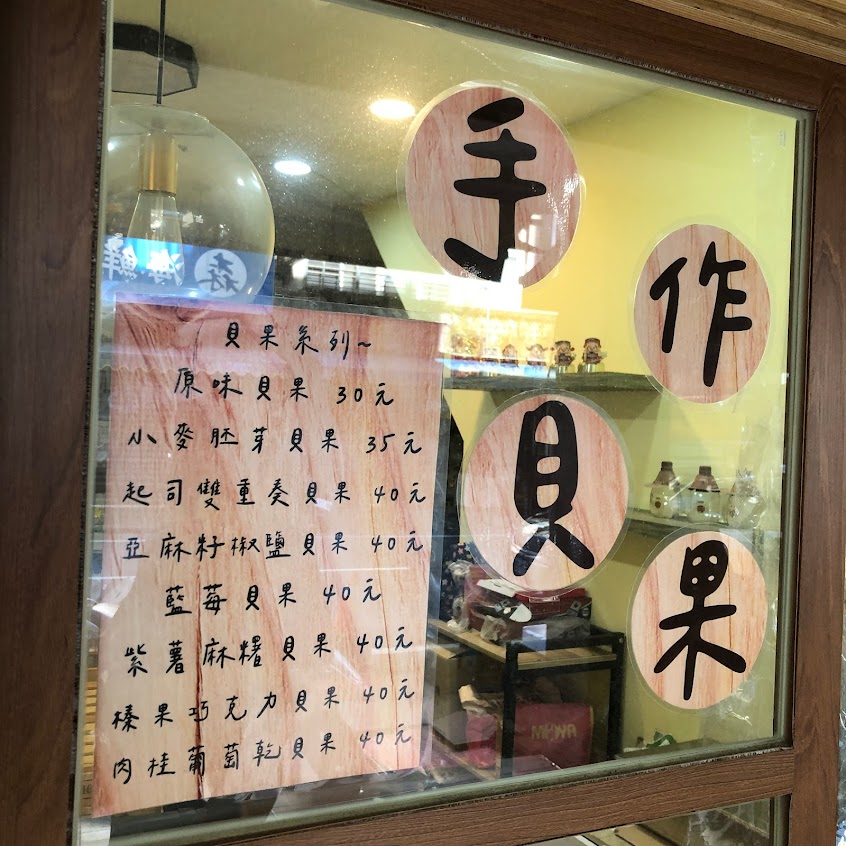 手
作
貝
果
貝果系列~
原味貝果 30元
小麥胚芽貝果 35元
起司雙重奏貝果 40元
亞麻籽椒鹽貝果 40元
藍莓貝果 40元
紫薯麻糬貝果 40元
榛果巧克力貝果 40元
肉桂葡萄乾貝果 40元
森 海鮮